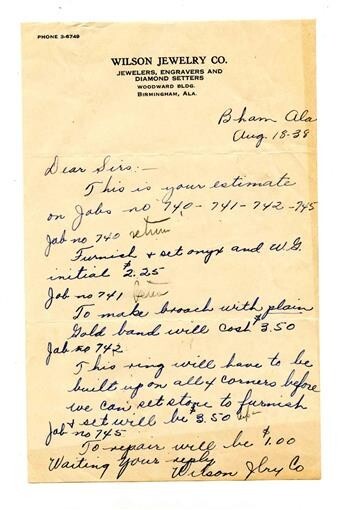 PHONE 3-6749
WILSON JEWELRY CO.
JEWELERS, ENGRAVERS AND
DIAMOND SETTERS
WOODWARD BLDG.
BIRMINGHAM, ALA.
Bham Ala
Aug. 18-38
Dear Sirs:-
This is your estimate
on Jobs no 740-741-742-745
Job no 740 return
Furnish & set onyx and W.G.
initial $2.25
Job no 741
To make broach with plain
Gold band will cost $3.50
Job no 742
This ring will have to be
built up on all 4 corners before
we can set stone to furnish
& set will be $3.50
Job no 745
To repair will be $1.00
Waiting your reply
Wilson Jlry Co